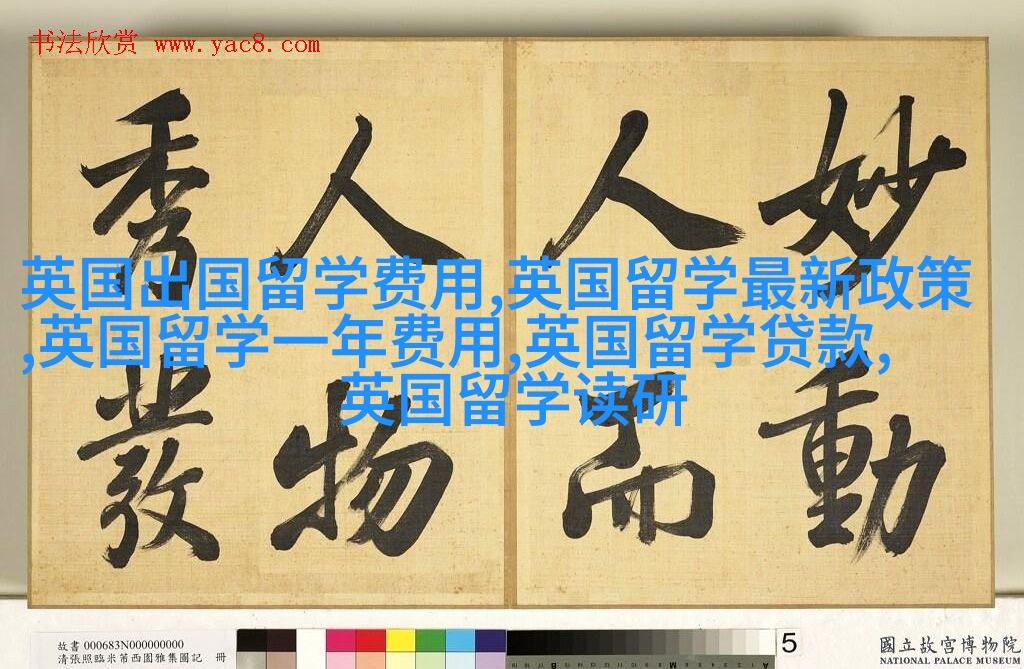 书法欣赏 www.yac8.com
妙動
人而
人物
秀發
英国出国留学费用,英国留学最新政策
,英国留学一年费用,英国留学贷款,
英国留学读研
故書 000683N000000000
清張照臨米芾西園雅集圖記 冊
5
國立故宮博物院
NATIONAL PALACE MUSEUM